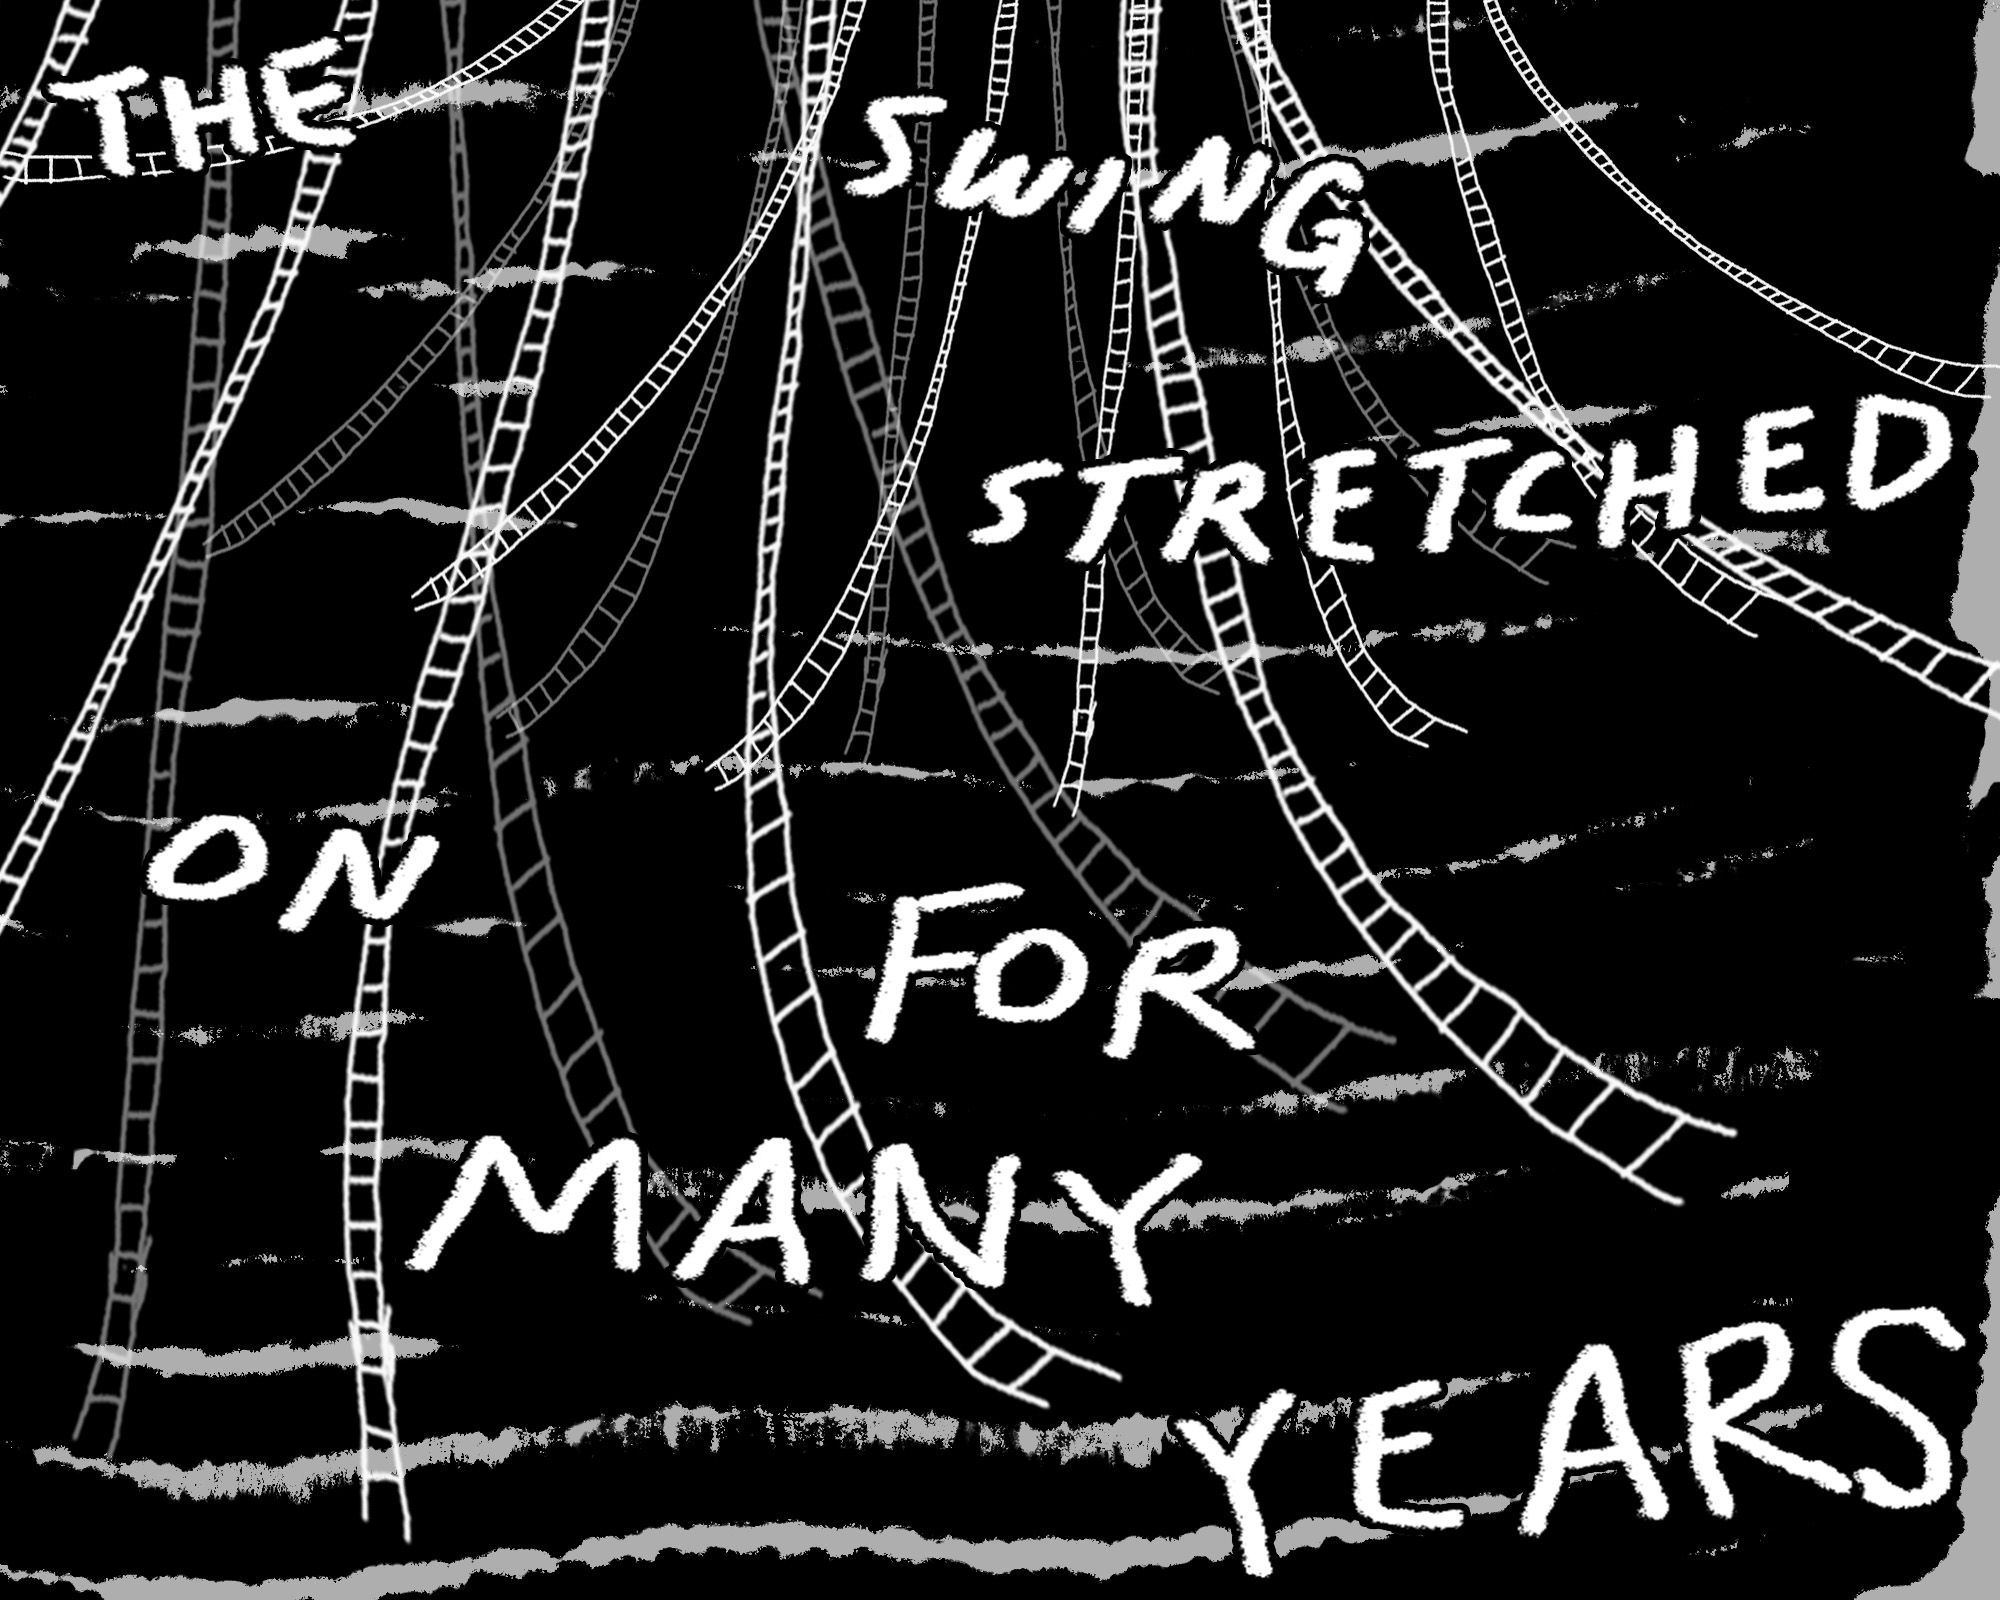 THE SWING
STRETCHED
ON FOR
MANY
YEARS